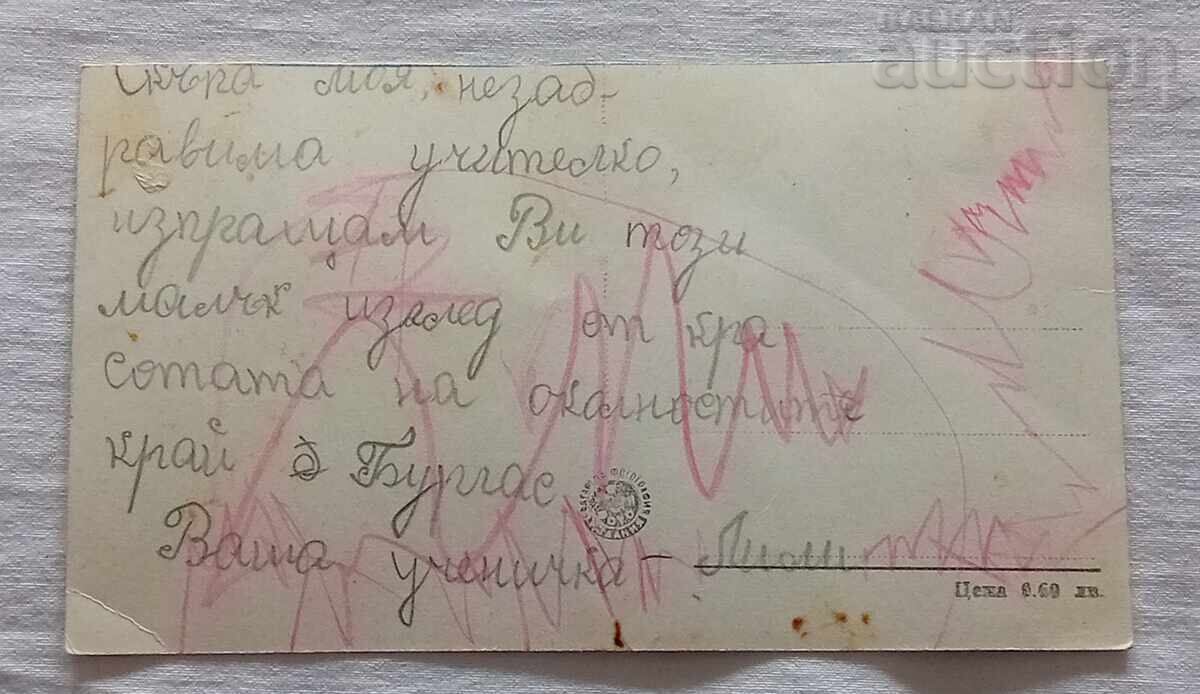 БАЛКАН
auction
Скъпа моя, незаб-
равима учителко,
изпращам Ви този
малък изглед от кра
сотата на околностите
край Бургас
Ваша ученичка –
Цена 0.60 лв.